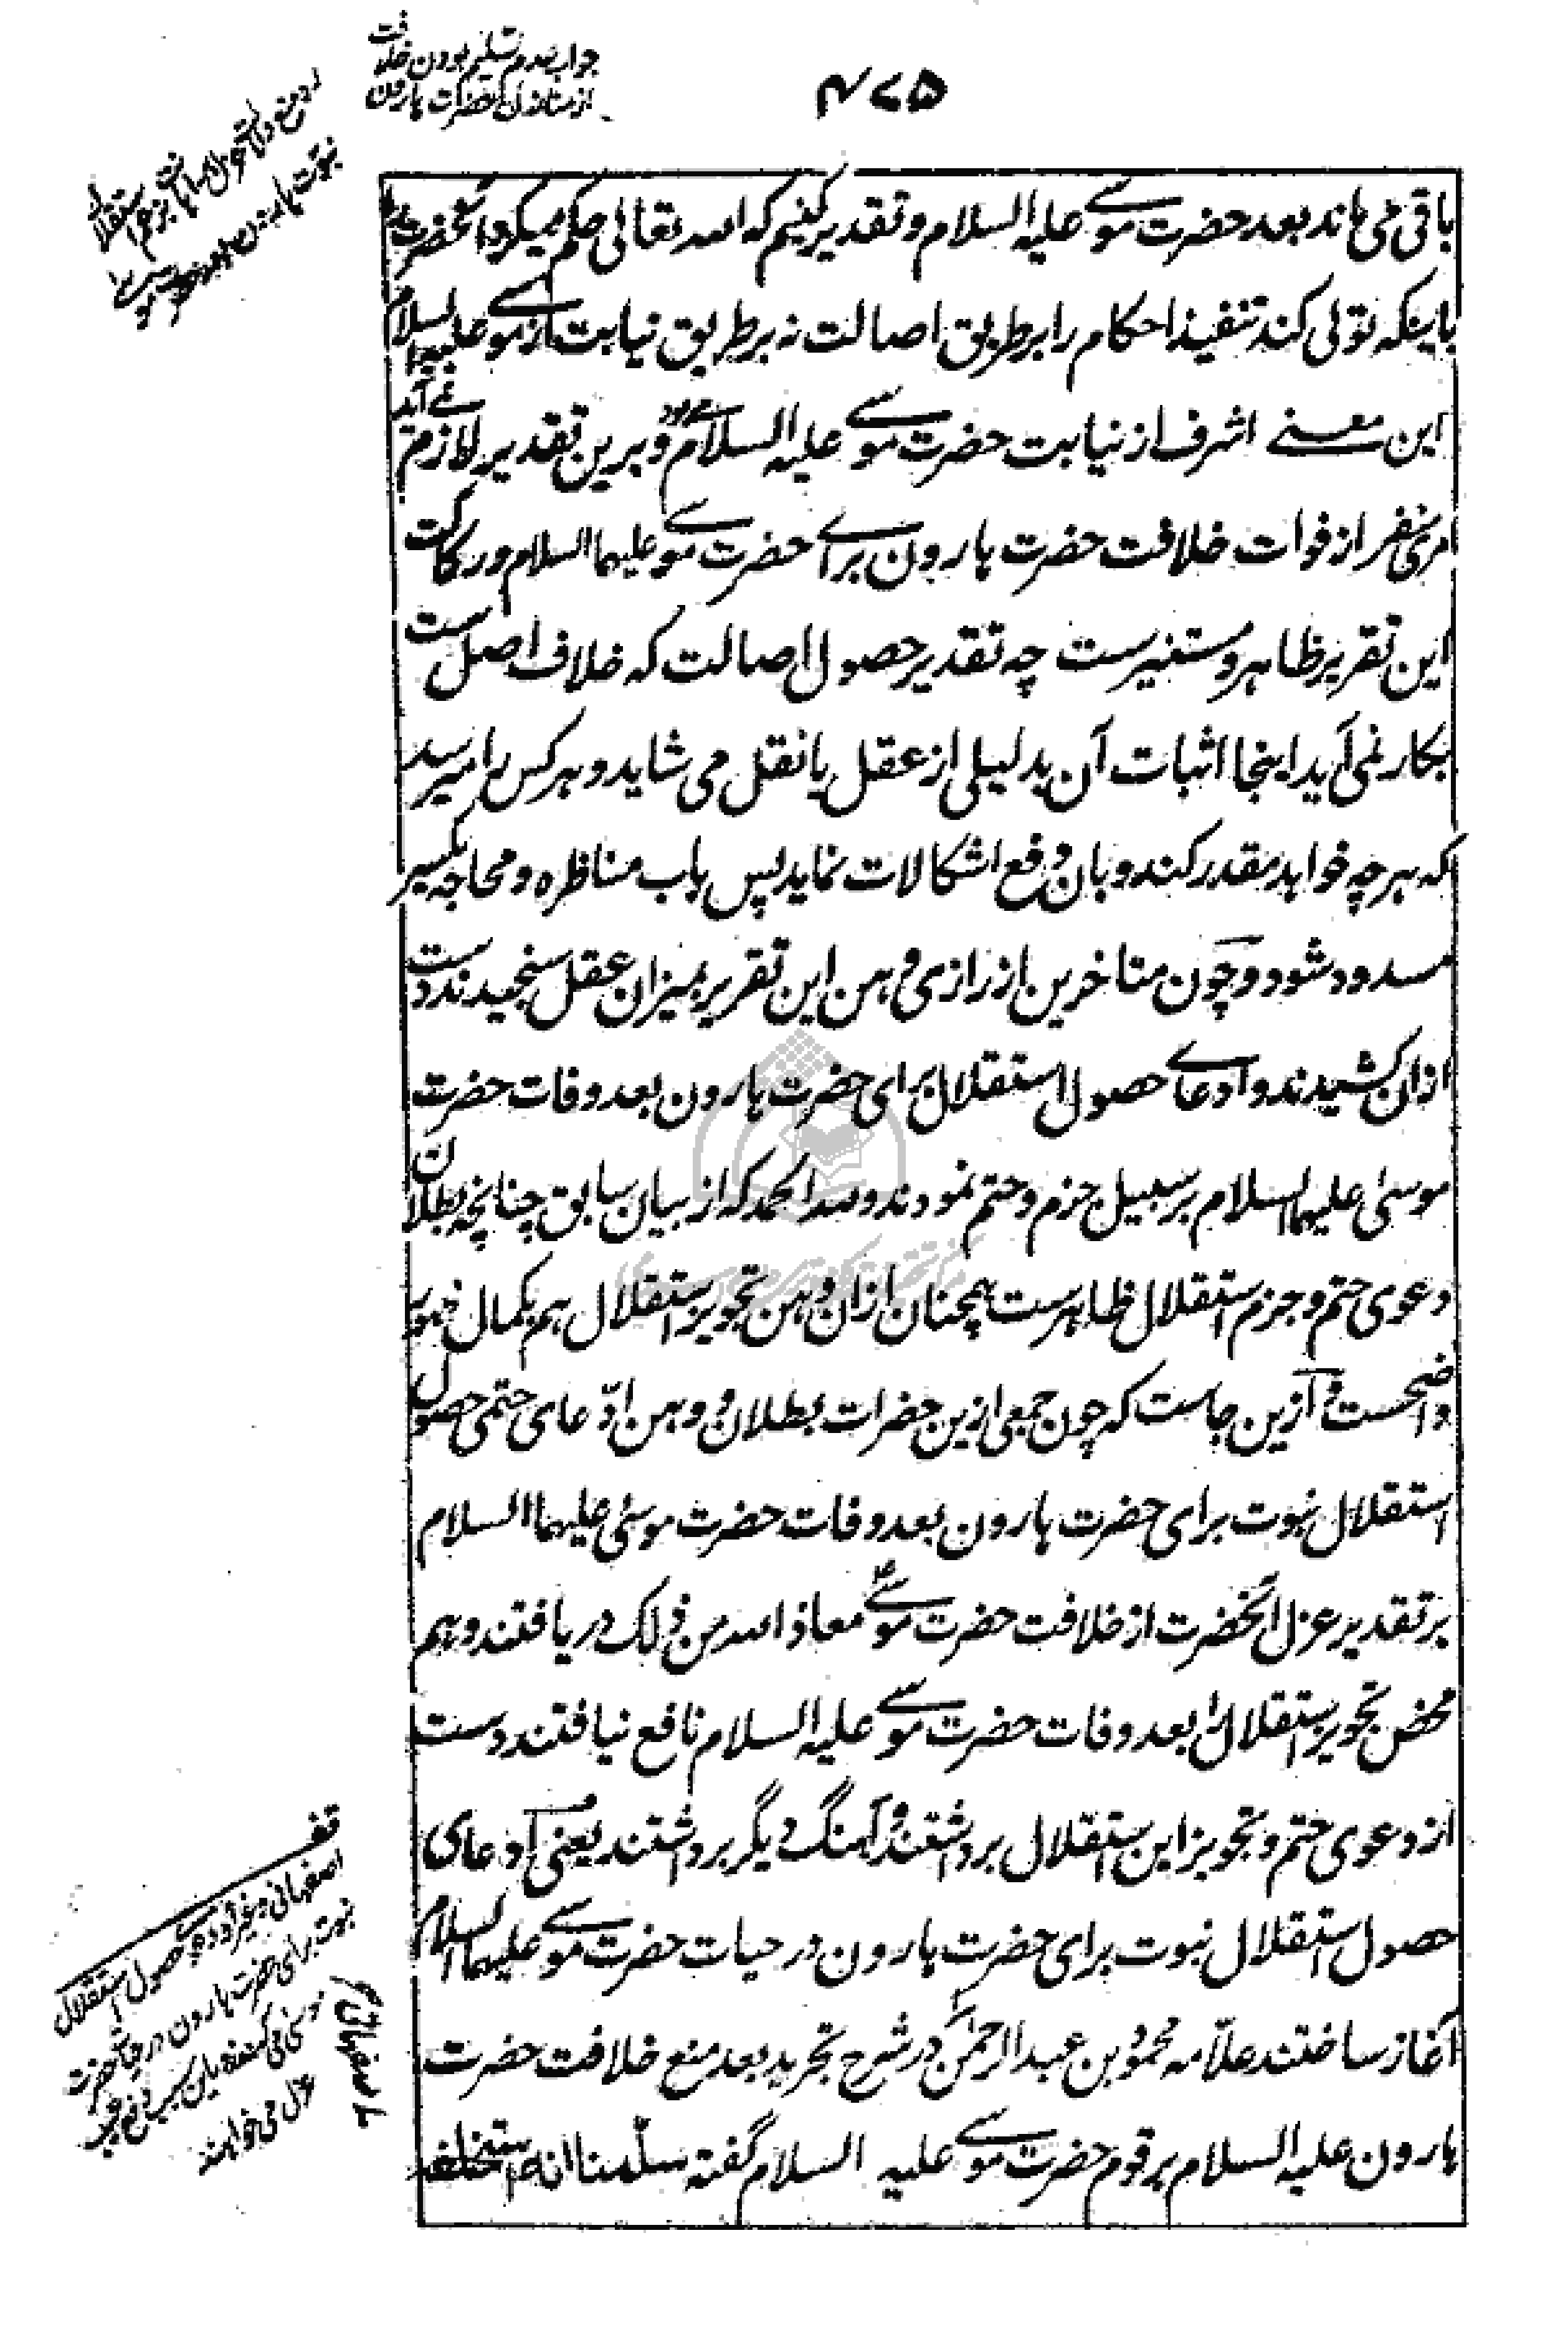 ۴۷۵
جواب عدم تسلیم بودن خلافت
از منازل حضرت هارون
باقی می ماند بعد حضرت موسے علیه السلام و تقدیر کنیم که الله تعالی حکم میکرد آنحضرت را
باینکه تولی کند تنفیذ احکام را بر طریق اصالت نه بر طریق نیابت از موسے علیه السلام
این معنے اشرف از نیابت حضرت موسے علیه السلام مے بود و برین تقدیر لازم نمے آید
امری منفر از فوات خلافت حضرت هارون براے حضرت موسے علیهما السلام و رکاکت
این تقریر ظاهر و مستنیرست چه تقدیر حصول اصالت که خلاف اصل ست
بکار نمی آید اینجا اثبات آن بدلیلی از عقل یا نقل می شاید و هر کس را میرسد
که هر چه خواهد مقدر کند و بآن دفع اشکالات نماید پس باب مناظره و محاجه یکسر
مسدود شود و چون متاخرین از رازی وهن این تقریر بمیزان عقل سنجیدند دست
ازان کشیدند و ادعاے حصول استقلال برای حضرت هارون بعد وفات حضرت
موسیٰ علیهما السلام بر سبیل جزم و حتم نمودند و لله الحمد که از بیان سابق چنانچه بطلان
دعوی حتم و جزم استقلال ظاهرست همچنان ازان وهن تجویز استقلال هم بکمال ظهور
واضحست و ازین جاست که چون جمعی ازین حضرات بطلان و وهن ادّعای حتمی حصول
استقلال نبوت برای حضرت هارون بعد وفات حضرت موسیٰ علیهما السلام
بر تقدیر عزل آنحضرت از خلافت حضرت موسےٰ معاذ الله من ذلک دریافتند و هم
محض تجویز استقلال را بعد وفات حضرت موسے علیه السلام نافع نیافتند دست
از دعوی حتم و تجویز این استقلال برداشتند و آهنگ دیگر برداشتند یعنی ادعای
حصول استقلال نبوت برای حضرت هارون در حیات حضرت موسے علیهما السلام
آغاز ساختند علّامه محمود بن عبد الرحمن در شرح تجرید بعد منع خلافت حضرت
هارون علیه السلام بر قوم حضرت موسے علیه السلام گفته سلّمنا انه استخلفه
اصفهانی وغیره دعوے حصول استقلال
نبوت برای حضرت هارون در حیات حضرت
عزل می خواهند